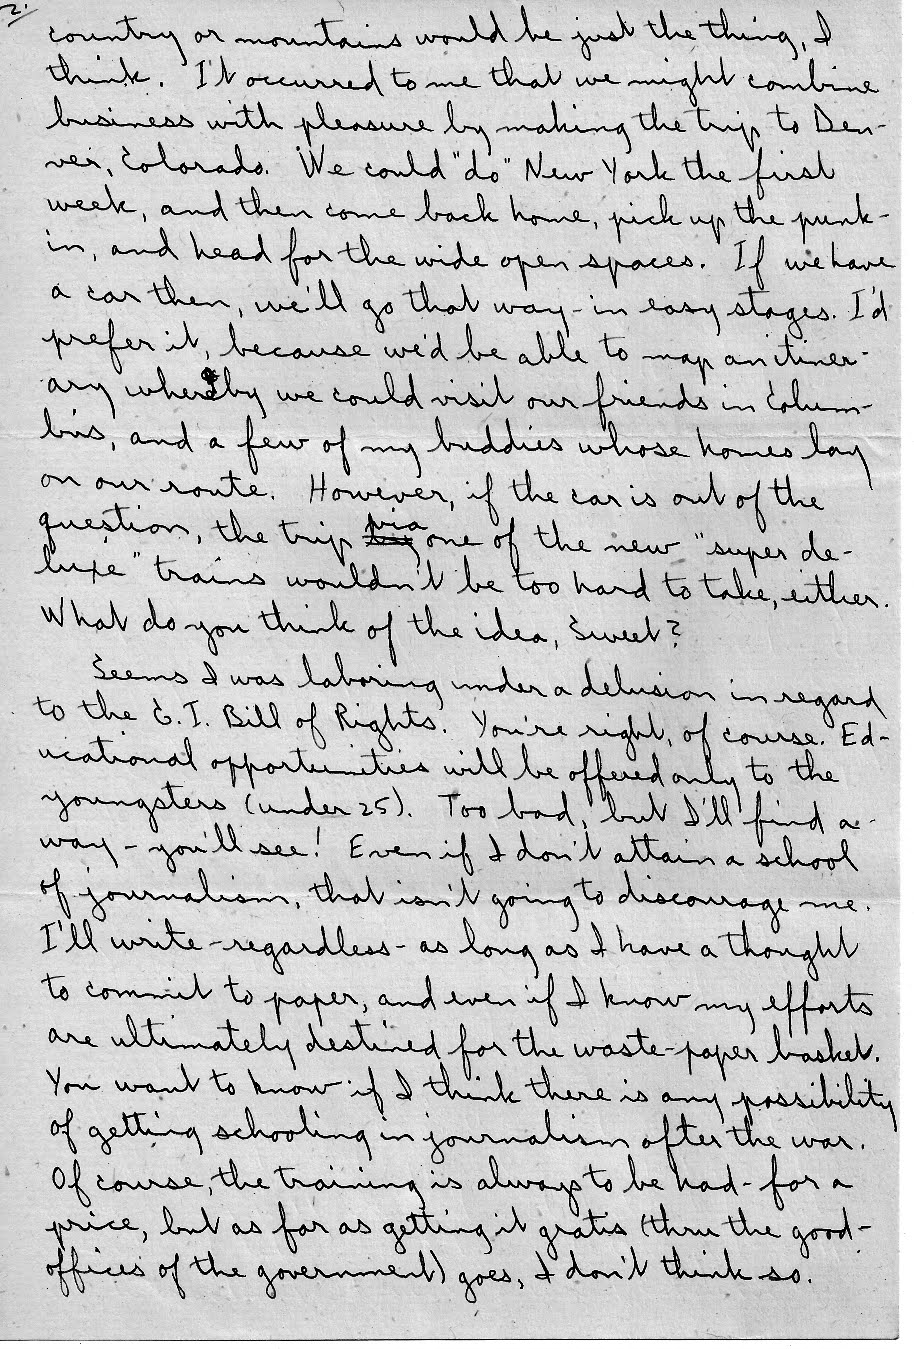 2.
country or mountains would be just the thing, I
think. It occurred to me that we might combine
business with pleasure by making the trip to Den-
ver, Colorado. We could "do" New York the first
week, and then come back home, pick up the punk-
in, and head for the wide open spaces. If we have
a car then, we'll go that way - in easy stages. I'd
prefer it, because we'd be able to map an itiner-
ary whereby we could visit our friends in Colum-
bus, and a few of my buddies whose homes lay
on our route. However, if the car is out of the
question, the trip via one of the new "super de-
luxe" trains wouldn't be too hard to take, either.
What do you think of the idea, Sweet?
Seems I was laboring under a delusion in regard
to the G.I. Bill of Rights. You're right, of course. Ed-
ucational opportunities will be offered only to the
youngsters (under 25). Too bad, but I'll find a
way - you'll see! Even if I don't attain a school
of journalism, that isn't going to discourage me.
I'll write - regardless - as long as I have a thought
to commit to paper, and even if I know my efforts
are ultimately destined for the waste-paper basket.
You want to know if I think there is any possibility
of getting schooling in journalism after the war.
Of course, the training is always to be had - for a
price, but as far as getting it gratis (thru the good-
offices of the government) goes, I don't think so.